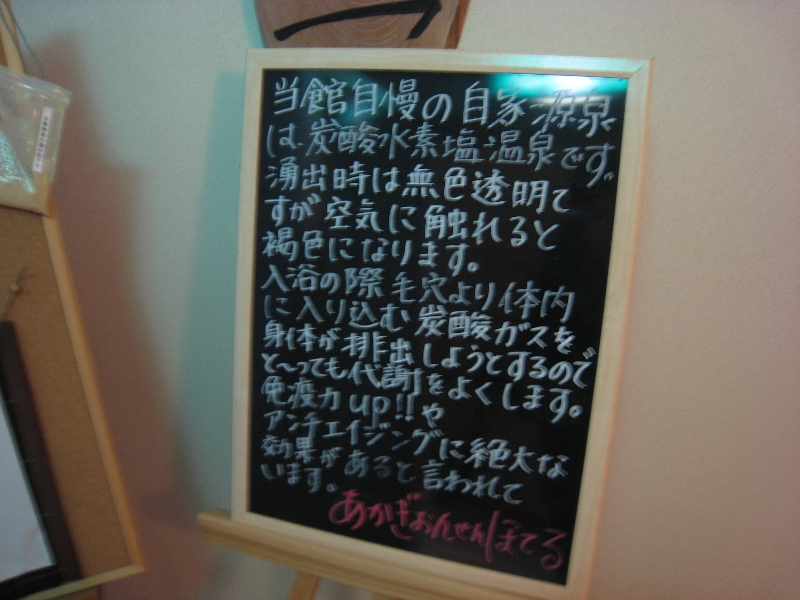 当館自慢の自家源泉
は、炭酸水素塩温泉です。
湧出時は無色透明で
すが空気に触れると
褐色になります。
入浴の際毛穴より体内
に入り込む炭酸ガスを
身体が排出しようとするので
と〜っても代謝をよくします。
免疫力up!!や
アンチエイジングに絶大な
効果があると言われて
います。
あかぎおんせんほてる